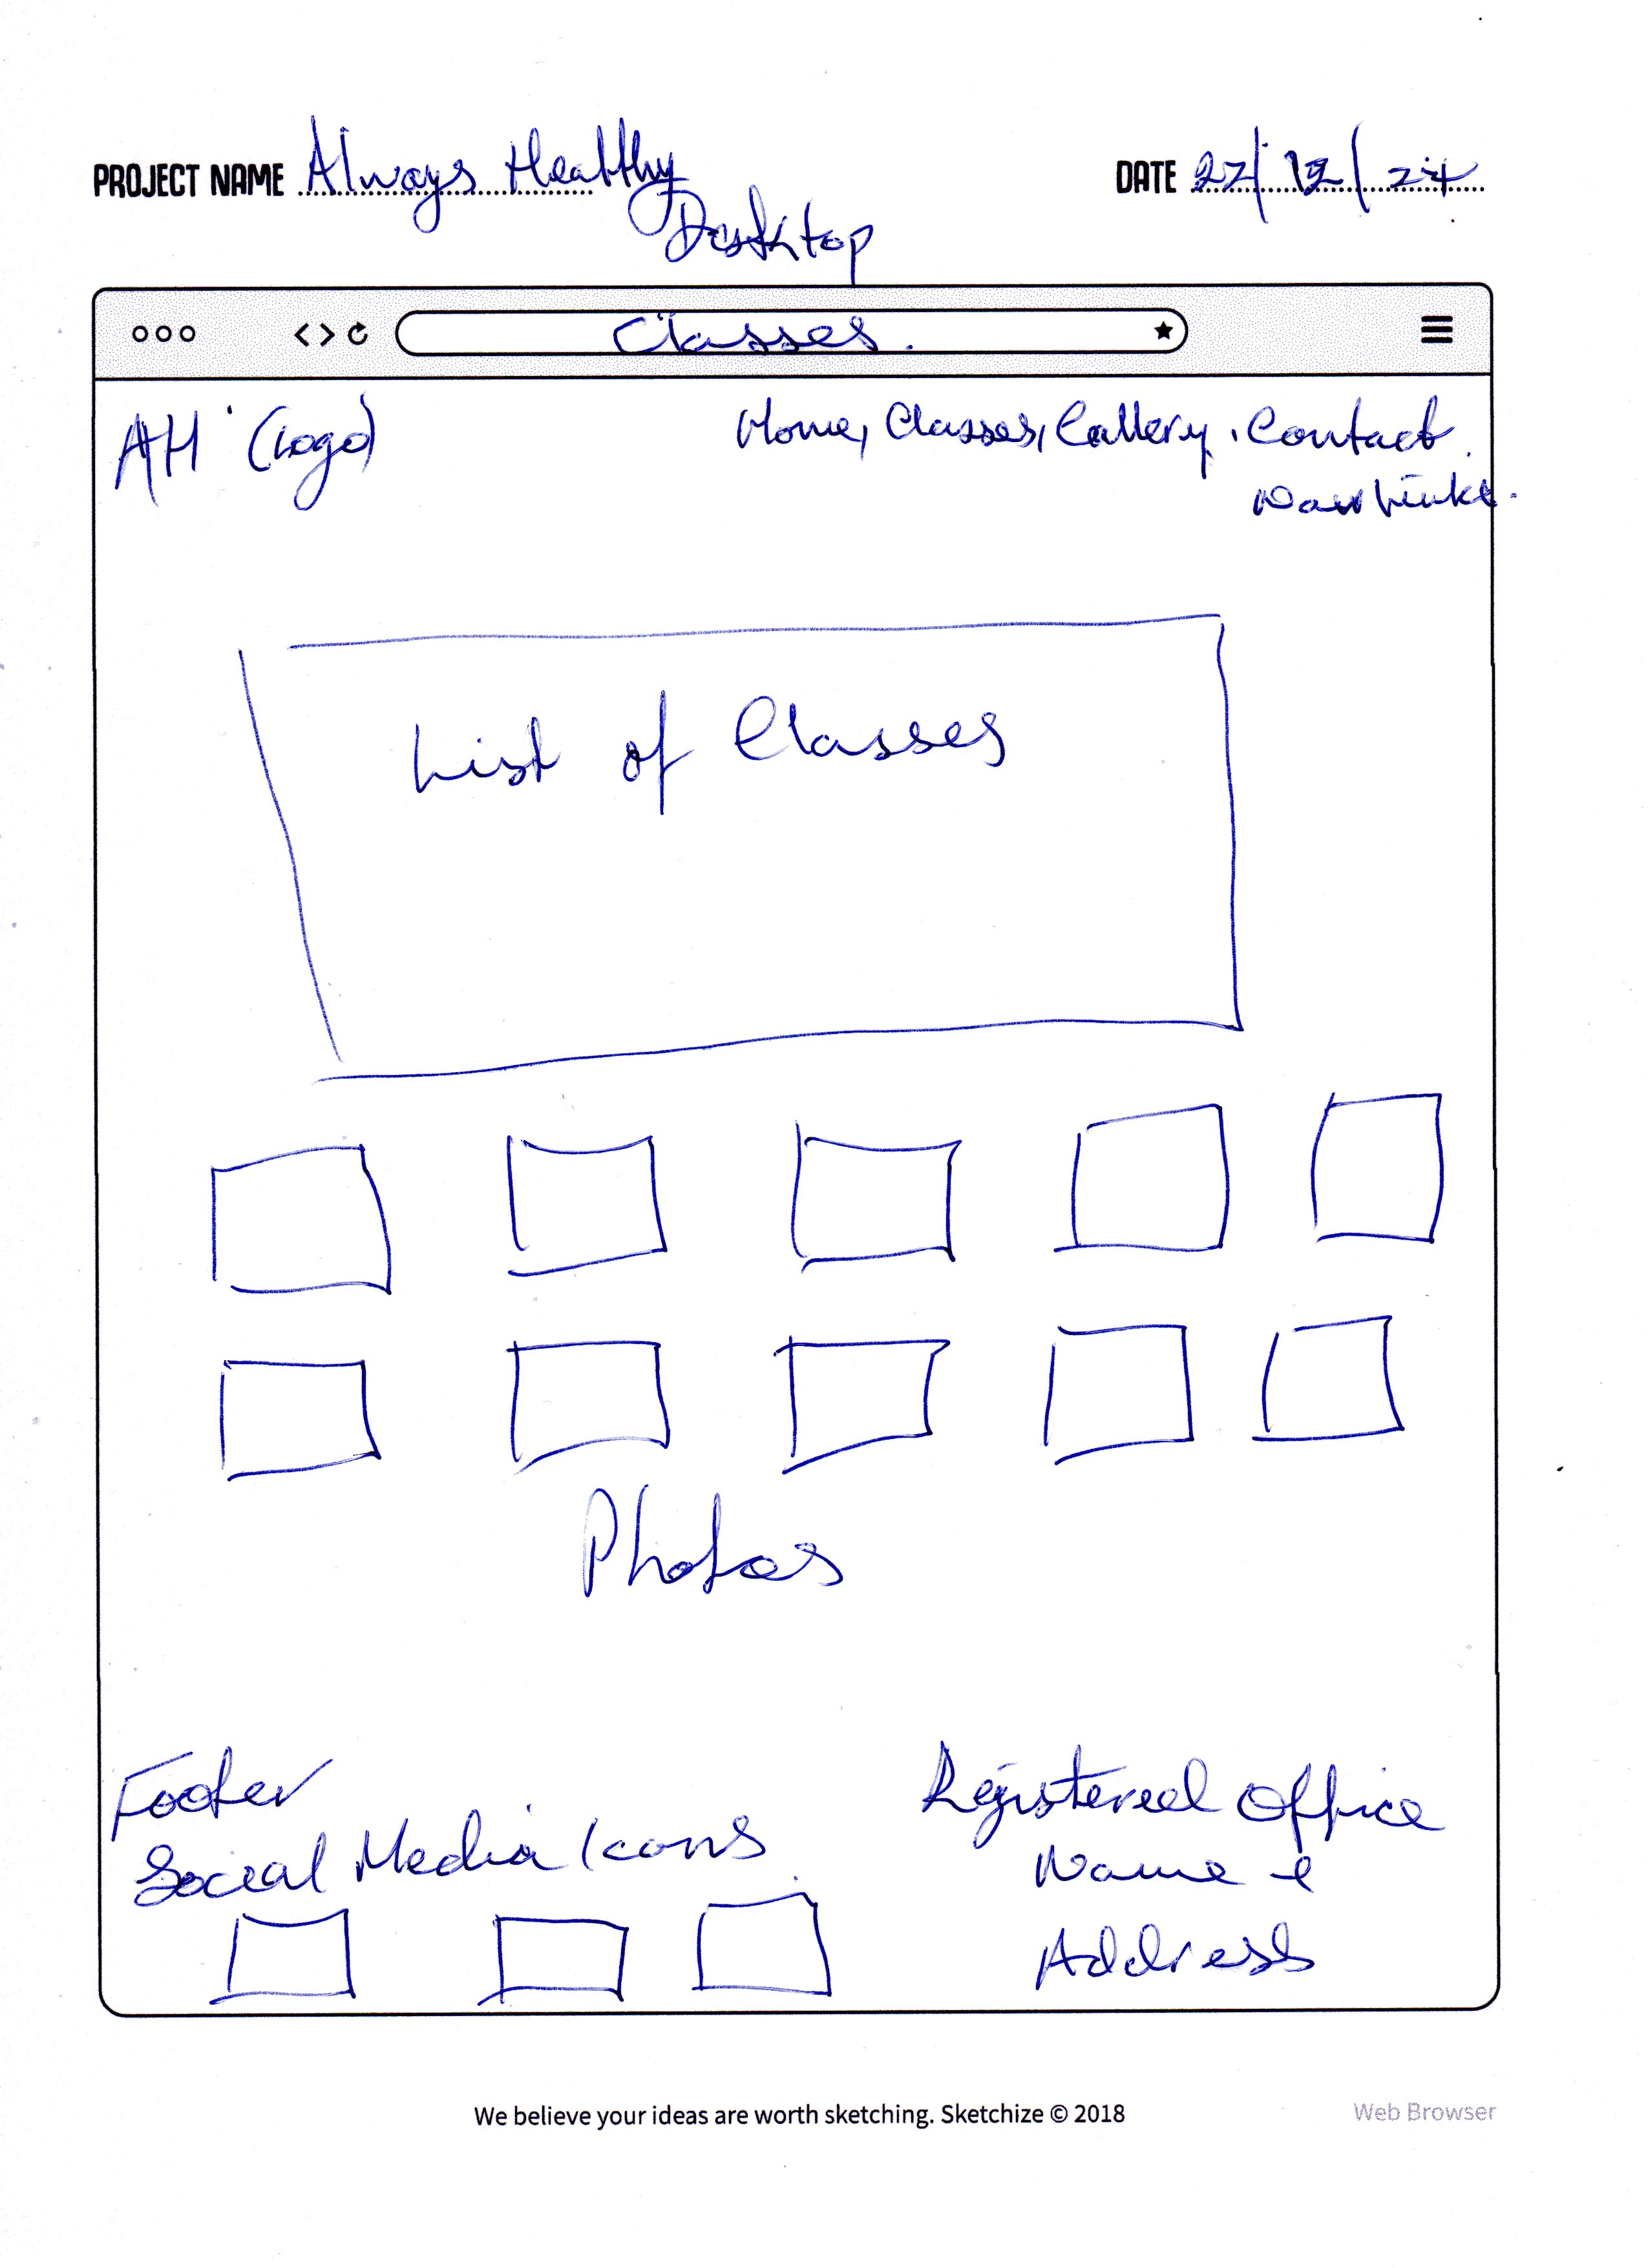 PROJECT NAME Always Healthy DATE 22/12/24
Desktop
Classes.
AH (Logo) Home, Classes, Gallery, Contact
Nav Links.
List of Classes
Photos
Footer
Social Media Icons
Registered Office
Name &
Address
We believe your ideas are worth sketching. Sketchize © 2018 Web Browser